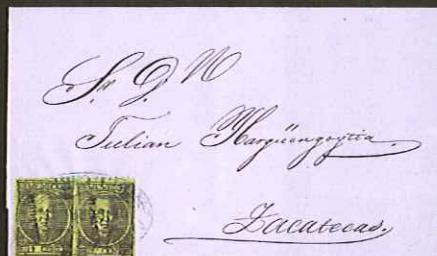 Sr. D. N
Julian Ibargüengoytia.
Zacatecas.